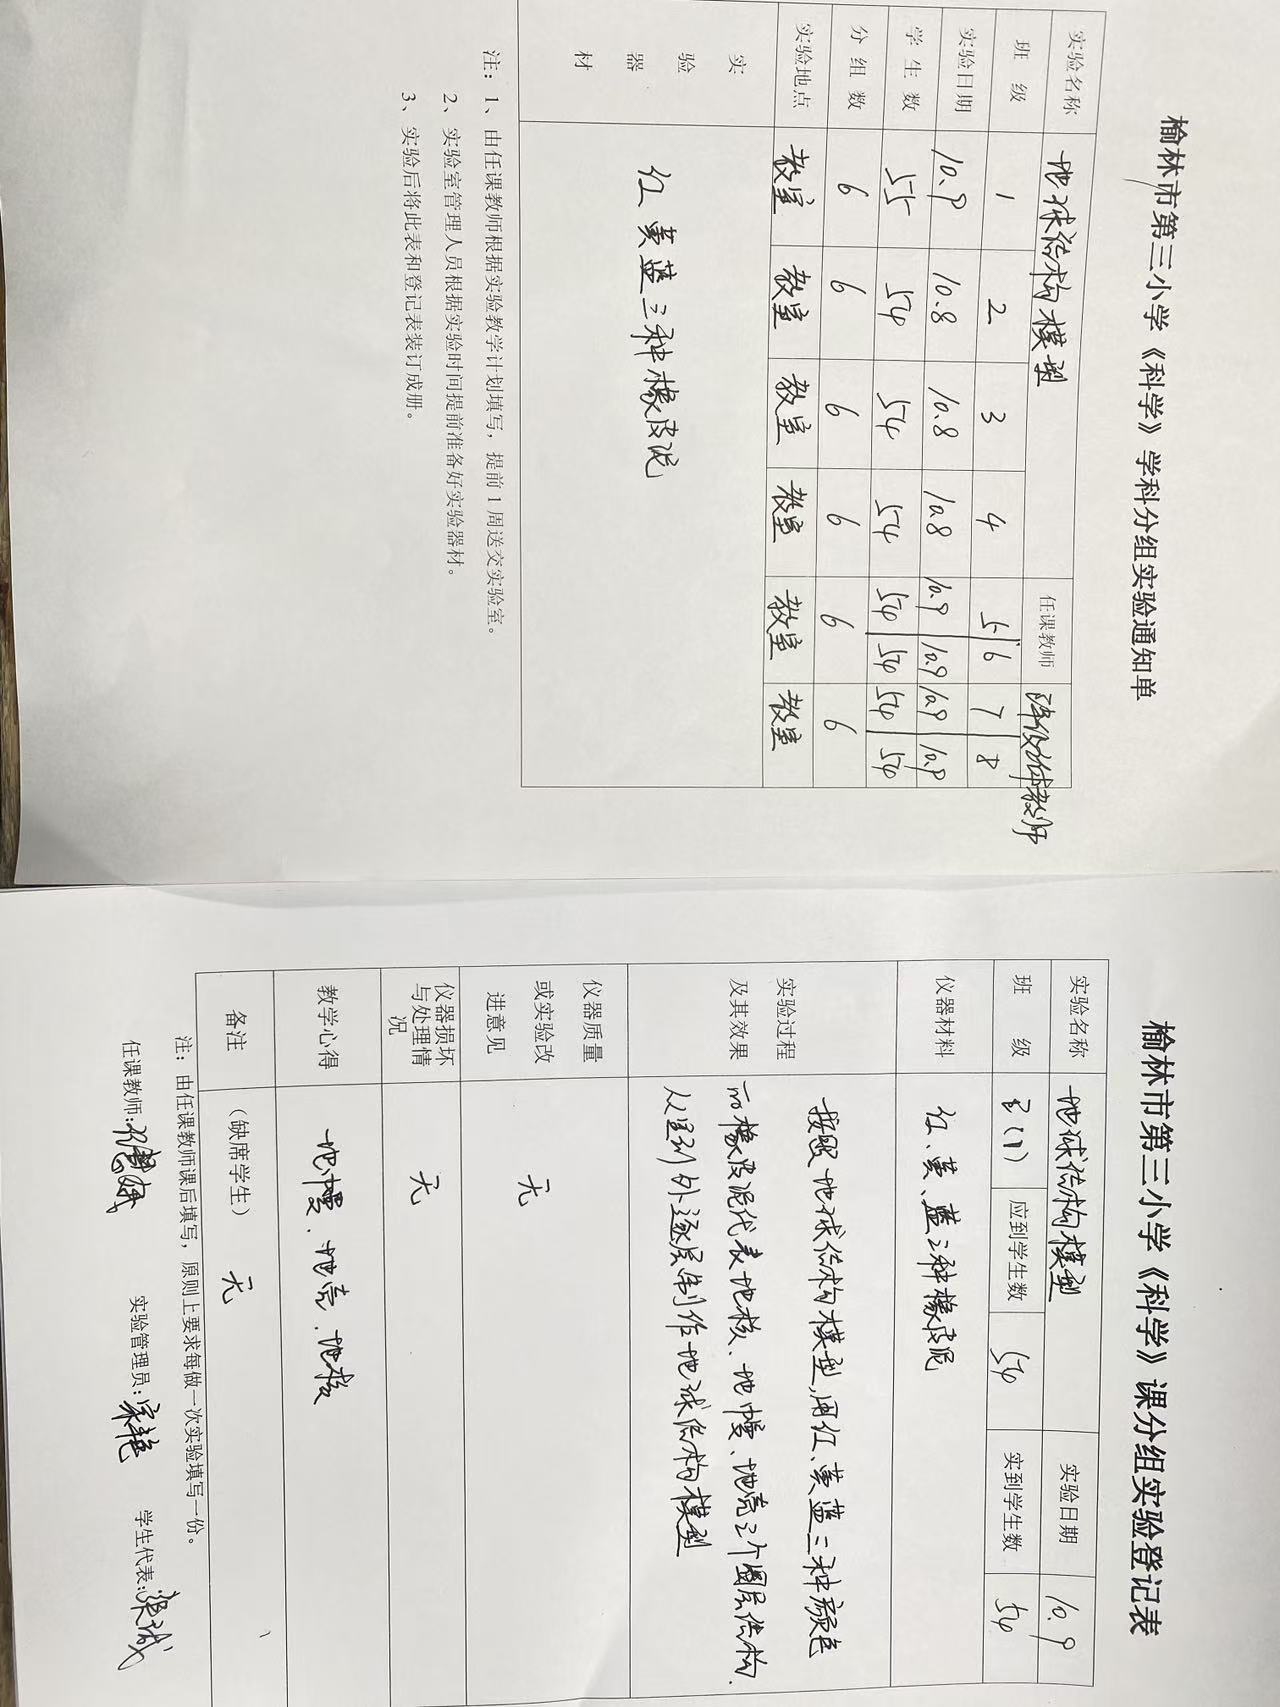 榆林市第三小学《科学》学科分组实验通知单
实验名称 地球结构模型 任课教师
班 级 1 2 3 4 5 6 7 8
实验日期 10.9 10.8 10.8 10.8 10.9 10.9 10.9 10.9
学 生 数 55 54 54 54 54 54 54 54
分 组 数 6 6 6 6 6 6
实验地点 教室 教室 教室 教室 教室 教室
实验器材 红 黄 蓝三种橡皮泥
注：1、由任课教师根据实验教学计划填写，提前1周送交实验室。
2、实验室管理人员根据实验时间提前准备好实验器材。
3、实验后将此表和登记表装订成册。
榆林市第三小学《科学》课分组实验登记表
实验名称 地球结构模型 实验日期 10.9
班 级 (1) 应到学生数 54 实到学生数 54
仪器材料 红、黄、蓝三种橡皮泥
实验过程及其效果
按照地球结构模型,用红、黄蓝三种颜色
橡皮泥代表地核、地幔、地壳三个圈层结构.
从里到外逐层制作地球结构模型
仪器质量或实验改进意见 无
仪器损坏与处理情况 无
教学心得 地幔、地壳、地核
备注 （缺席学生） 无
注：由任课教师课后填写，原则上要求每做一次实验填写一份。
任课教师: 实验管理员: 学生代表: